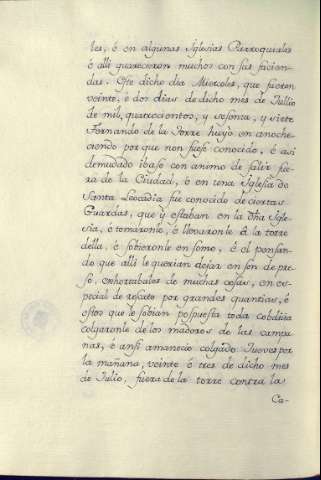 les, é en algunas Iglesias Parroquiales
é alli guarecieron muchos con sus facien-
das. Este dicho dia Miercoles, que fueron
veinte, é dos dias de dicho mes de Jullio
de mil, quatrocientos, y sesenta, y siete
Fernando de la Torre huyó en anoche-
ciendo por que non fuese conocido, é asi
demudado ibase con animo de salir fue-
ra de la Ciudad, é en una Iglesia de
Santa Leocadia fue conocido de ciertas
Guardas, que y estaban en la dha Igle-
sia, é tomaronle, é llevaronle á la torre
della, é sobieronle en somo, é el pensan-
do que alli le querian dejar en son de pre-
so, exhortabales de muchas cosas, en es-
pecial de rescate por grandes quantias, é
estos que le sobian pospuesta toda cobdicia
colgaronle de los maderos de las campa-
nas, é ansi amanecio colgado Jueves por
la mañana, veinte é tres de dicho mes
de Julio, fuera de la torre contra la
Ca-